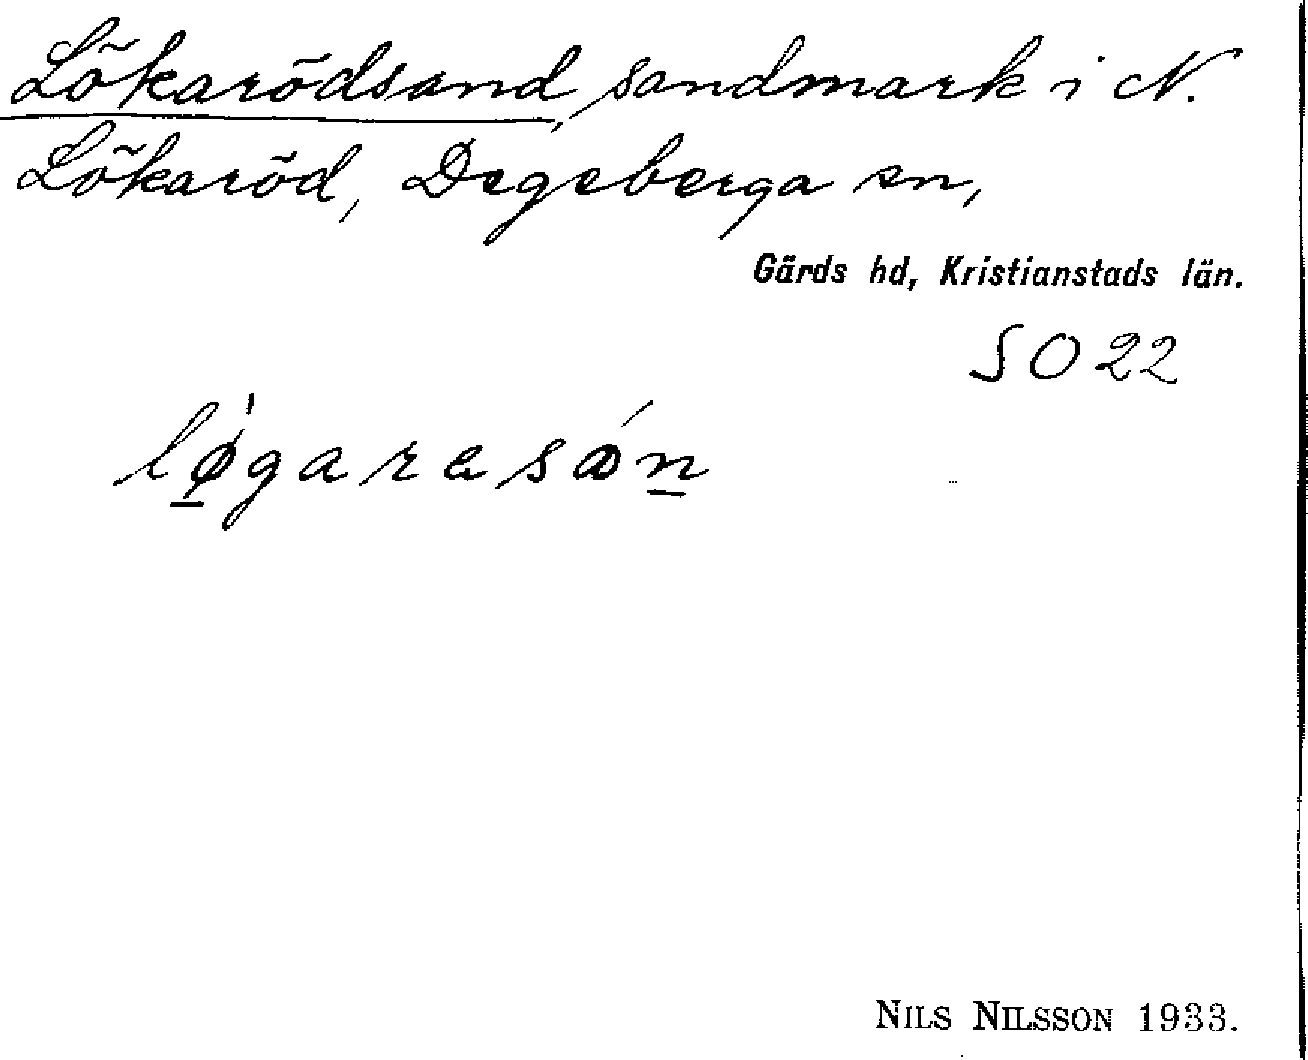 Lökarödsand, sandmark i N.
Lökaröd, Degeberga sn,
Gärds hd, Kristianstads län.
SO 22
NILS NILSSON 1933.